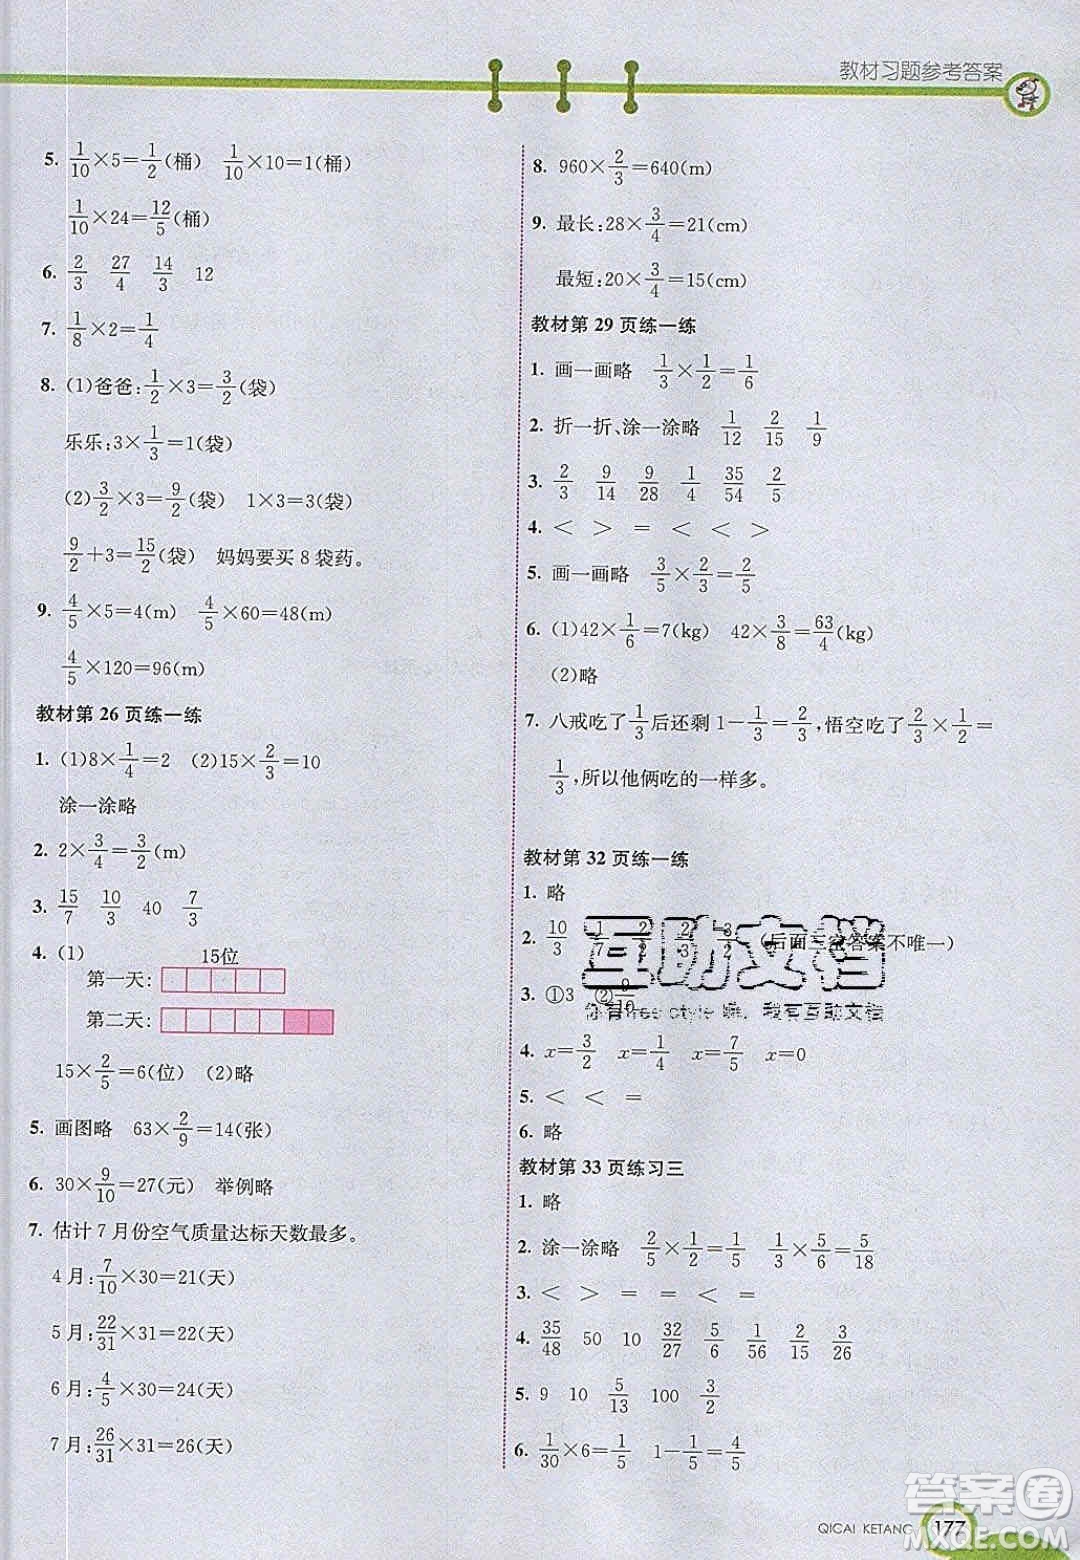 教材习题参考答案
5. 1/10×5=1/2(桶) 1/10×10=1(桶)
1/10×24=12/5(桶)
6. 2/3 27/4 14/3 12
7. 1/8×2=1/4
8. (1)爸爸:1/2×3=3/2(袋)
乐乐:3×1/3=1(袋)
(2)3/2×3=9/2(袋) 1×3=3(袋)
9/2+3=15/2(袋) 妈妈要买 8 袋药。
9. 4/5×5=4(m) 4/5×60=48(m)
4/5×120=96(m)
教材第 26 页练一练
1. (1)8×1/4=2 (2)15×2/3=10
涂一涂略
2. 2×3/4=3/2(m)
3. 15/7 10/3 40 7/3
4. (1)
15位
第一天:
第二天:
15×2/5=6(位) (2)略
5. 画图略 63×2/9=14(张)
6. 30×9/10=27(元) 举例略
7. 估计 7 月份空气质量达标天数最多。
4 月:7/10×30=21(天)
5 月:22/31×31=22(天)
6 月:4/5×30=24(天)
7 月:26/31×31=26(天)
8. 960×2/3=640(m)
9. 最长:28×3/4=21(cm)
最短:20×3/4=15(cm)
教材第 29 页练一练
1. 画一画略 1/3×1/2=1/6
2. 折一折、涂一涂略 1/12 2/15 1/9
3. 2/3 9/14 9/28 1/4 35/54 2/5
4. < > = < < >
5. 画一画略 3/5×2/3=2/5
6. (1)42×1/6=7(kg) 42×3/8=63/4(kg)
(2)略
7. 八戒吃了1/3后还剩 1-1/3=2/3,悟空吃了2/3×1/2=
1/3,所以他俩吃的一样多。
教材第 32 页练一练
1. 略
2. 10/3 1/7 (后面三空答案不唯一)
3. ①3 ②9/10
4. x=3/2 x=1/4 x=7/5 x=0
5. < < =
6. 略
教材第 33 页练习三
1. 略
2. 涂一涂略 2/5×1/2=1/5 1/3×5/6=5/18
3. < > = = < =
4. 35/48 50 10 32/27 5/6 1/56 2/15 3/26
5. 9 10 5/13 100 3/2
6. 1/30×6=1/5 1-1/5=4/5
互助文档
你有free style 嘛，我有互助文档
答案圈
MXQE.COM
QICAI KETANG 177